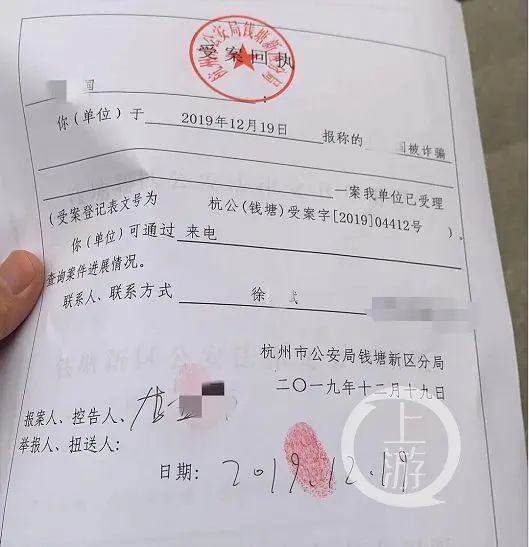 杭州市公安局钱塘新区分局
受案回执
国:
你(单位)于 2019年12月19日 报称的 国被诈骗
一案我单位已受理
(受案登记表文号为 杭公(钱塘)受案字[2019]04412号 )。
你(单位)可通过 来电
查询案件进展情况。
联系人、联系方式 徐 武
杭州市公安局钱塘新区分局
二〇一九年十二月十九日
报案人、控告人、
举报人、扭送人:
日期: 2019.12.19
上游